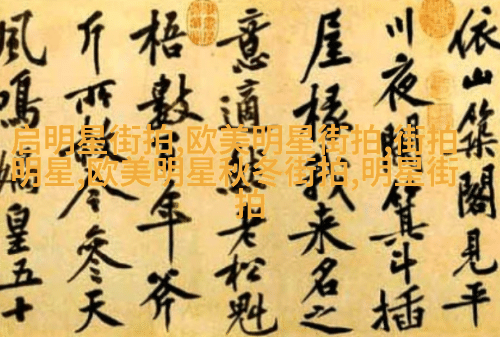 依山築閣見平
川夜闌箕斗插
屋椽我來名之
意適然老松魁
梧數百年斧
斤所赦今參天
風鳴媧皇五十
启明星街拍,欧美明星街拍,街拍
明星,欧美明星秋冬街拍,明星街
拍